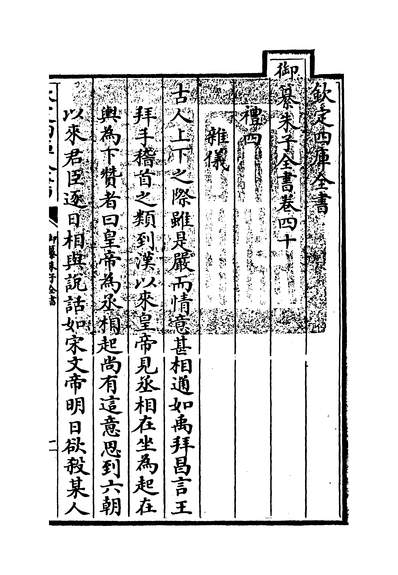 欽定四庫全書
御纂朱子全書卷四十
禮四
雜儀
古人上下之際雖是嚴而情意甚相通如禹拜昌言王
拜手稽首之類到漢以來皇帝見丞相在坐為起在
輿為下贊者曰皇帝為丞相起尚有這意思到六朝
以來君臣逐日相與說話如宋文帝明日欲殺某人